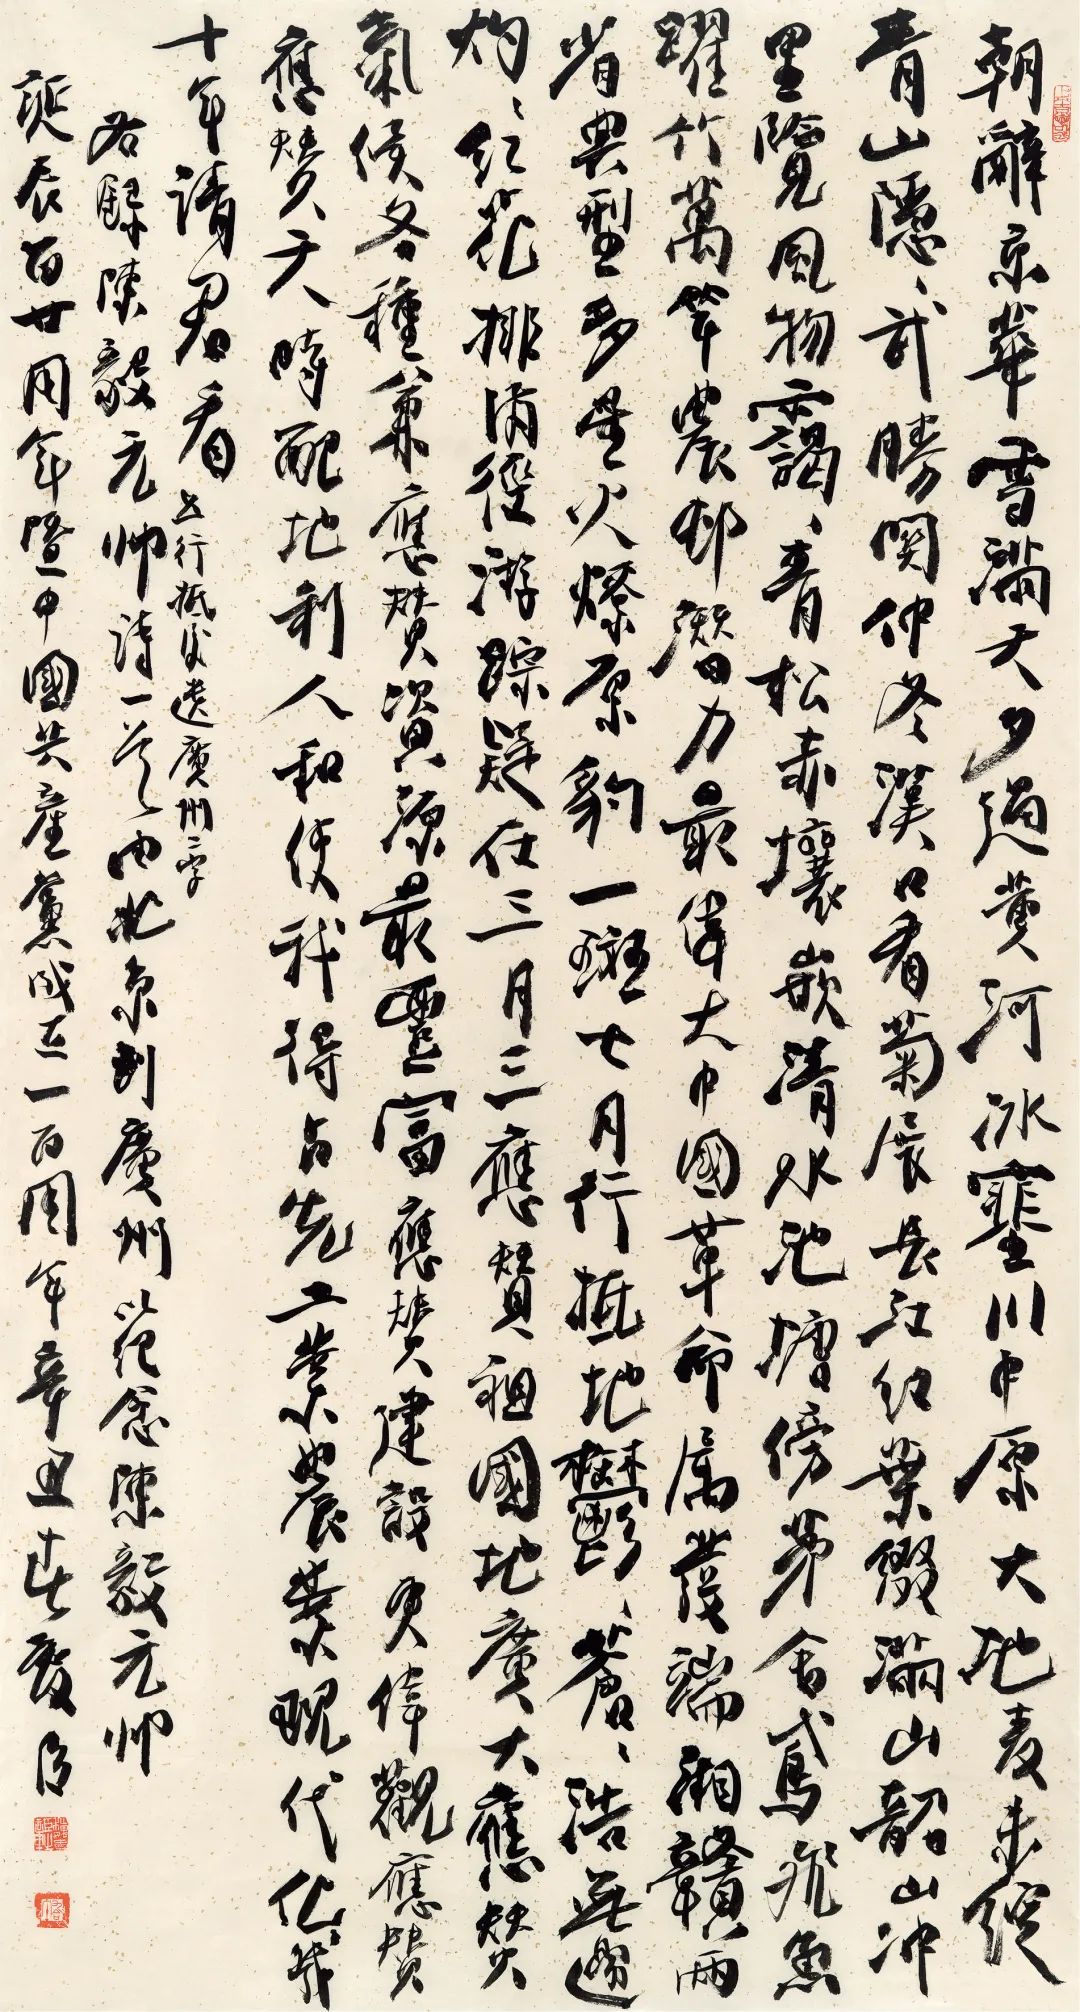 朝辭京華雪滿天夕過黄河冰塞川中原大地麦未綻
青山隱、武勝関仲冬漢口看菊展長江红葉綴滿山韶山冲
里覽風物靄、青松赤壤嵌清水池塘傍茅舍鳶飛魚
躍竹萬竿農邨潛力最偉大中國革命属發端湘贛兩
省典型多星火燎原豹一斑七月行抵地鬱、蒼、浩無邊
灼、红花排滿徑游踪疑在三月三應贊祖國地廣大應贊
氣候各種兼應贊資源最豐富應贊建設更偉觀應贊
應贊天時配地利人和使我得占先工業農業現代化幾
十年請君看 七行抵後遺廣州二字
右録陳毅元帥詩一首由北京到廣州以范念陳毅元帥
誕辰百廿周年暨中國共產黨成立一百周年辛丑春